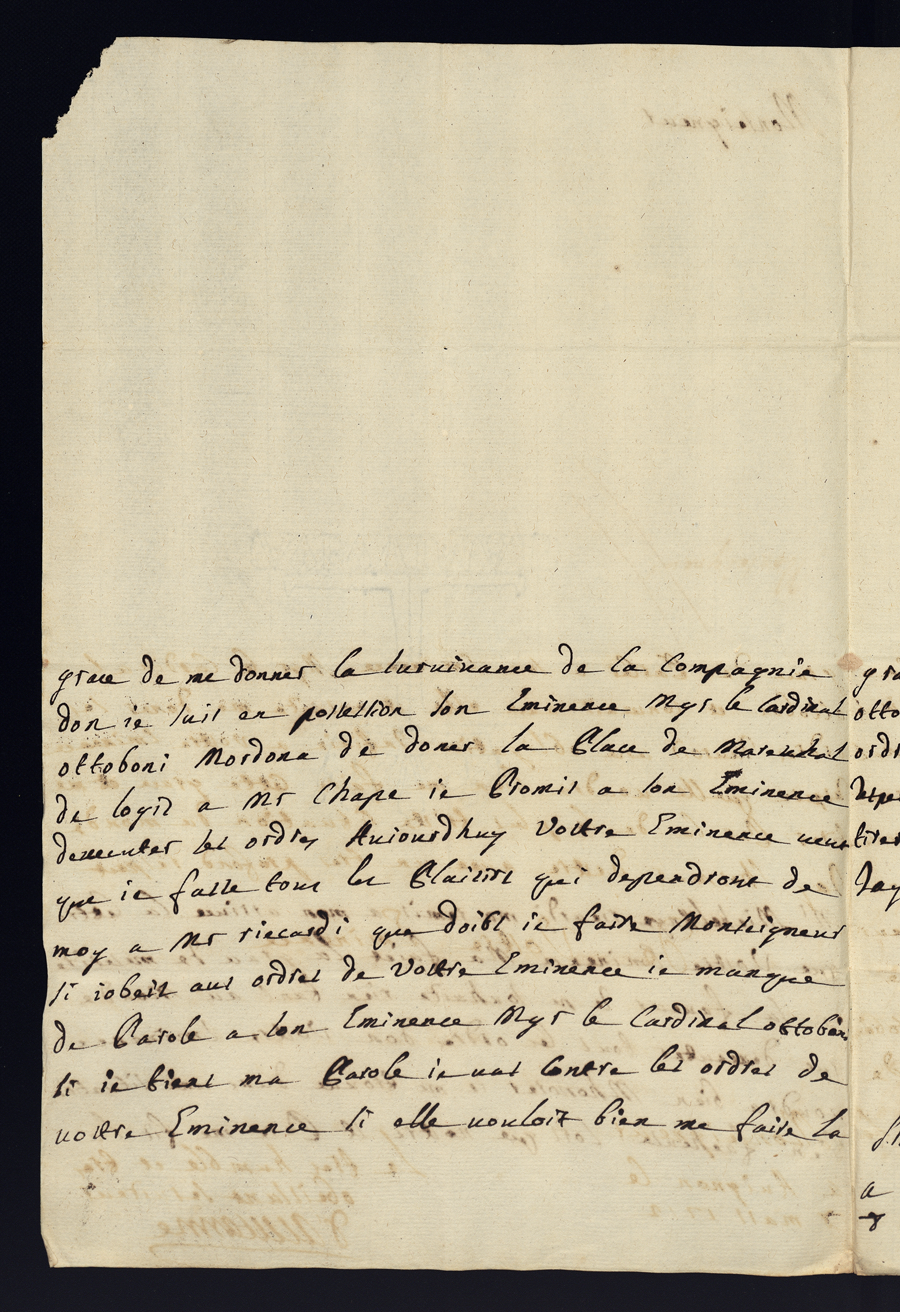 grace de me donner la survivance de la Compagnie
don ie suis en possession son Eminence Mgr le Cardinal
ottoboni Mordona de doner la Place de Marechal
de logis a Mr Chape ie Promis a son Eminence
dexecuter ses ordres Auiourdhuy Vostre Eminence veut
que ie fasse tous les Plaisirs qui dependront de
moy a Mr riccardi que doibt ie faire Monseigneur
si iobeis aus ordres de Vostre Eminence ie manque
de Parole a son Eminence Mgr le Cardinal ottoboni
si ie tiens ma Parole ie vas Contre les ordres de
vostre Eminence si elle vouloit bien me faire la